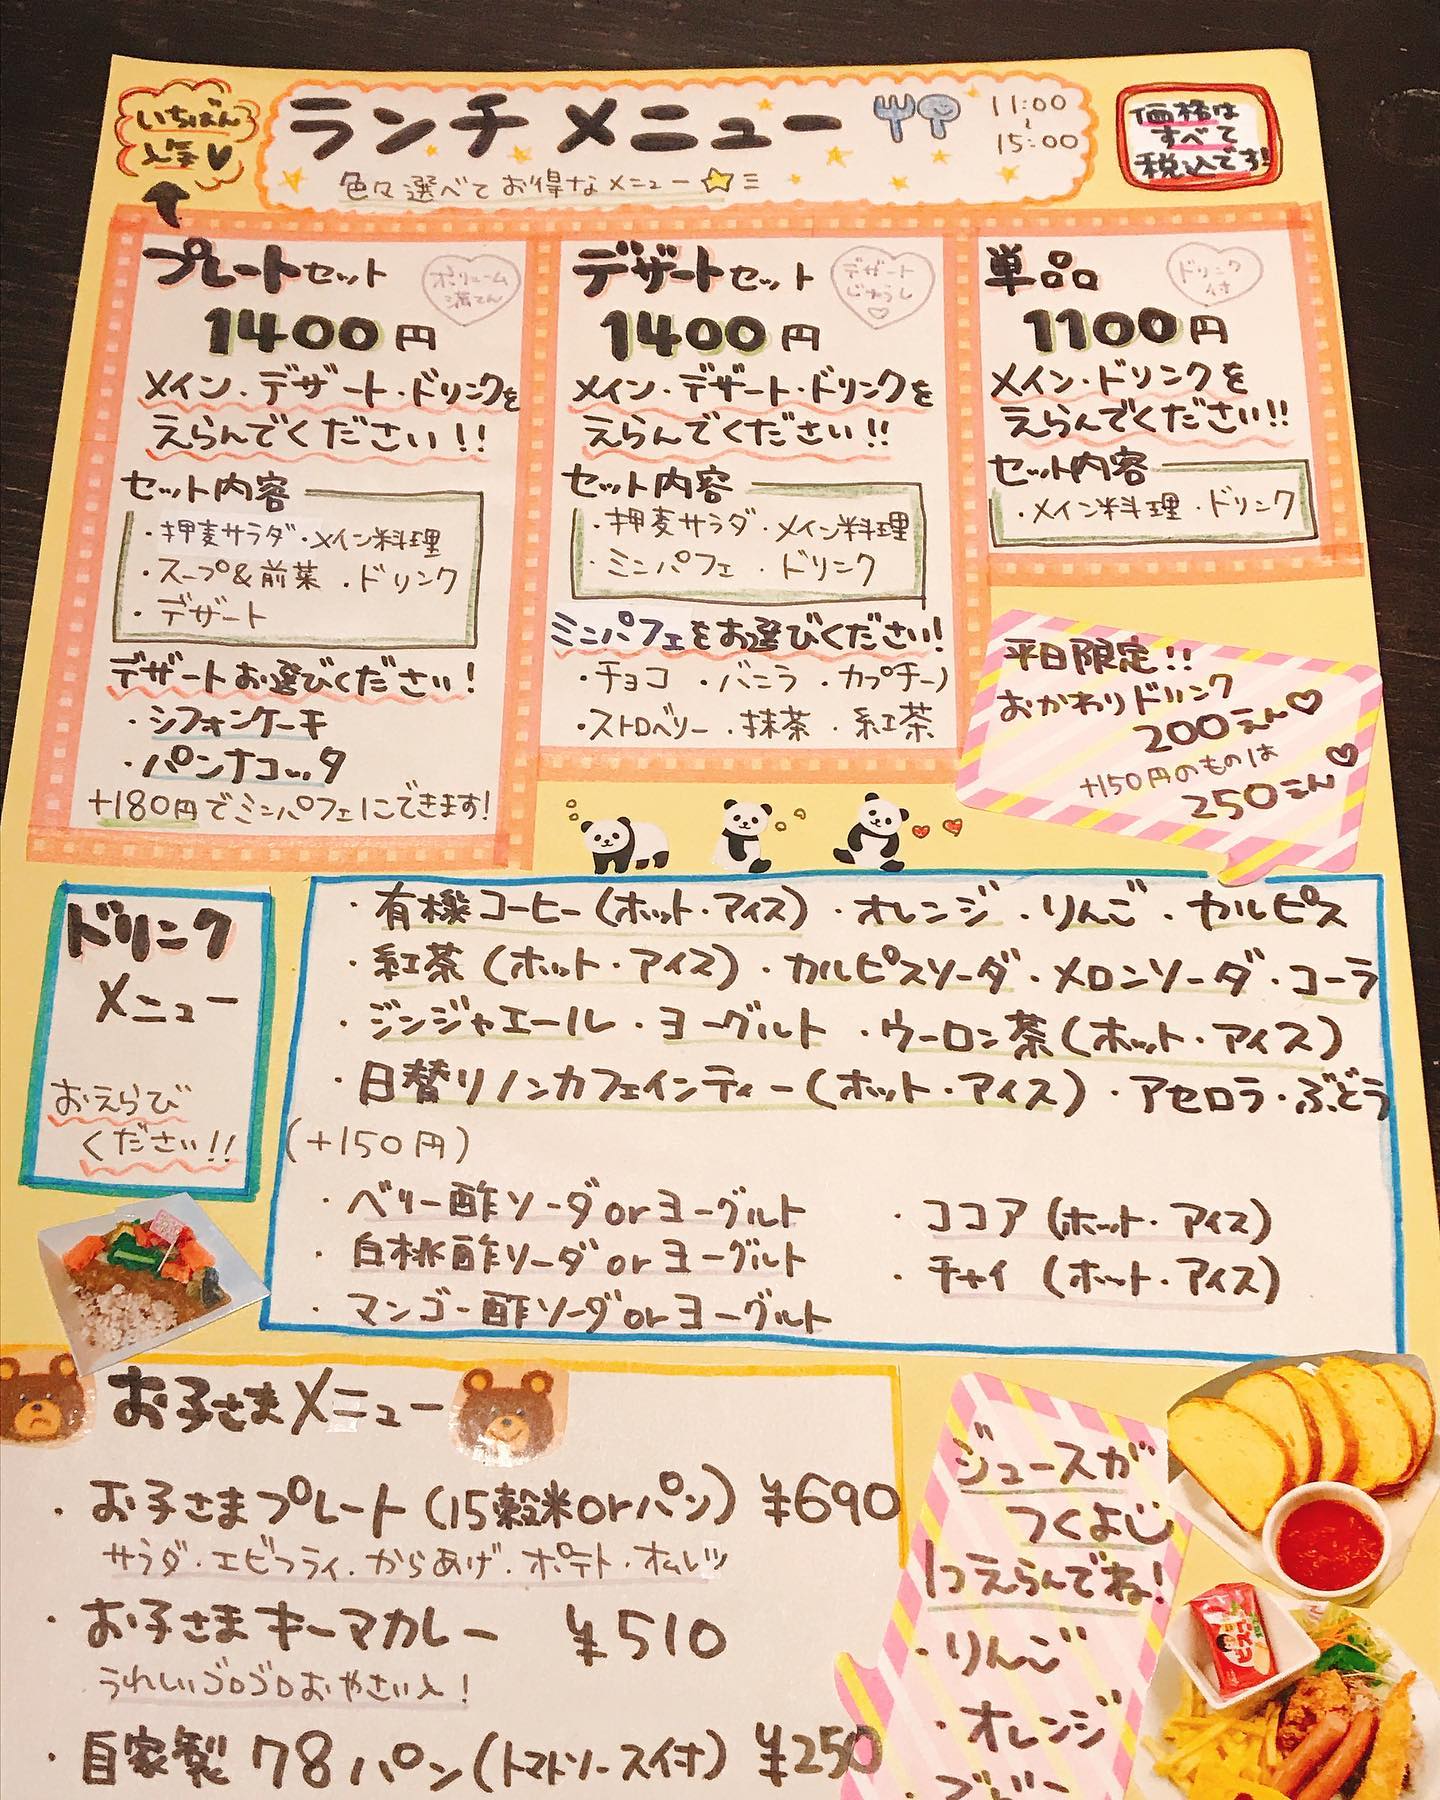 いちばん
人気♥
ランチメニュー
11:00
~
15:00
色々選べてお得なメニュー☆彡
価格は
すべて
税込です!
プレートセット
ボリューム
満てん
1400円
メイン・デザート・ドリンクを
えらんでください!!
セット内容
・押麦サラダ・メイン料理
・スープ&前菜・ドリンク
・デザート
デザートお選びください!
・シフォンケーキ
・パンナコッタ
+180円でミニパフェにできます!
デザートセット
デザート
じゅうし
♡
1400円
メイン・デザート・ドリンクを
えらんでください!!
セット内容
・押麦サラダ・メイン料理
・ミニパフェ・ドリンク
ミニパフェをお選びください!
・チョコ・バニラ・カプチーノ
・ストロベリー・抹茶・紅茶
単品
ドリンク
付
1100円
メイン・ドリンクを
えらんでください!!
セット内容
・メイン料理・ドリンク
平日限定!!
おかわりドリンク
200えん♡
+150円のものは
250えん♡
ドリンク
メニュー
おえらび
ください!!
・有機コーヒー(ホット・アイス)・オレンジ・りんご・カルピス
・紅茶(ホット・アイス)・カルピスソーダ・メロンソーダ・コーラ
・ジンジャエール・ヨーグルト・ウーロン茶(ホット・アイス)
・日替りノンカフェインティー(ホット・アイス)・アセロラ・ぶどう
(+150円)
・ベリー酢ソーダorヨーグルト
・白桃酢ソーダorヨーグルト
・マンゴー酢ソーダorヨーグルト
・ココア(ホット・アイス)
・チャイ(ホット・アイス)
お子さまメニュー
・お子さまプレート(15穀米orパン)¥690
サラダ・エビフライ・からあげ・ポテト・オムレツ
・お子さまキーマカレー ¥510
うれしいゴロゴロおやさい入!
・自家製78パン(トマトソース付)¥250
ジュースが
つくよ
1つえらんでね!
・りんご
・オレンジ